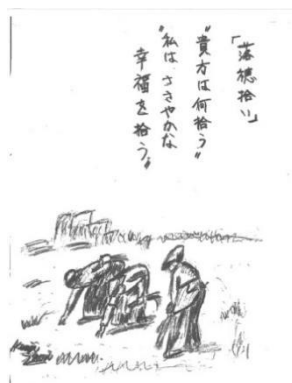 「落穂拾い」
"貴方は何拾う"
"私は、ささやかな
幸福を拾う。"